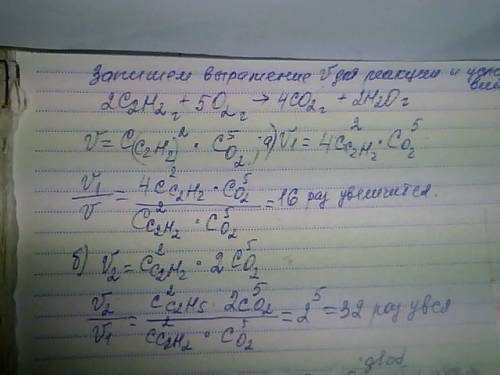 Запишем выражение V для реакции и
2C2H2г + 5O2г → 4CO2г + 2H2Oг
V = C(C2H2)^2 · CO2^5; а) V1 = 4C^2C2H2 · CO2^5
V1/V = 4C^2C2H2 · CO2^5 / C^2C2H2 · CO2^5 = 16 раз увеличится.
б) V2 = C^2C2H2 · 2CO2^5
V2/V1 = C^2C2H5 · 2CO2^5 / C^2C2H2 · CO2^5 = 2^5 = 32 раз увся